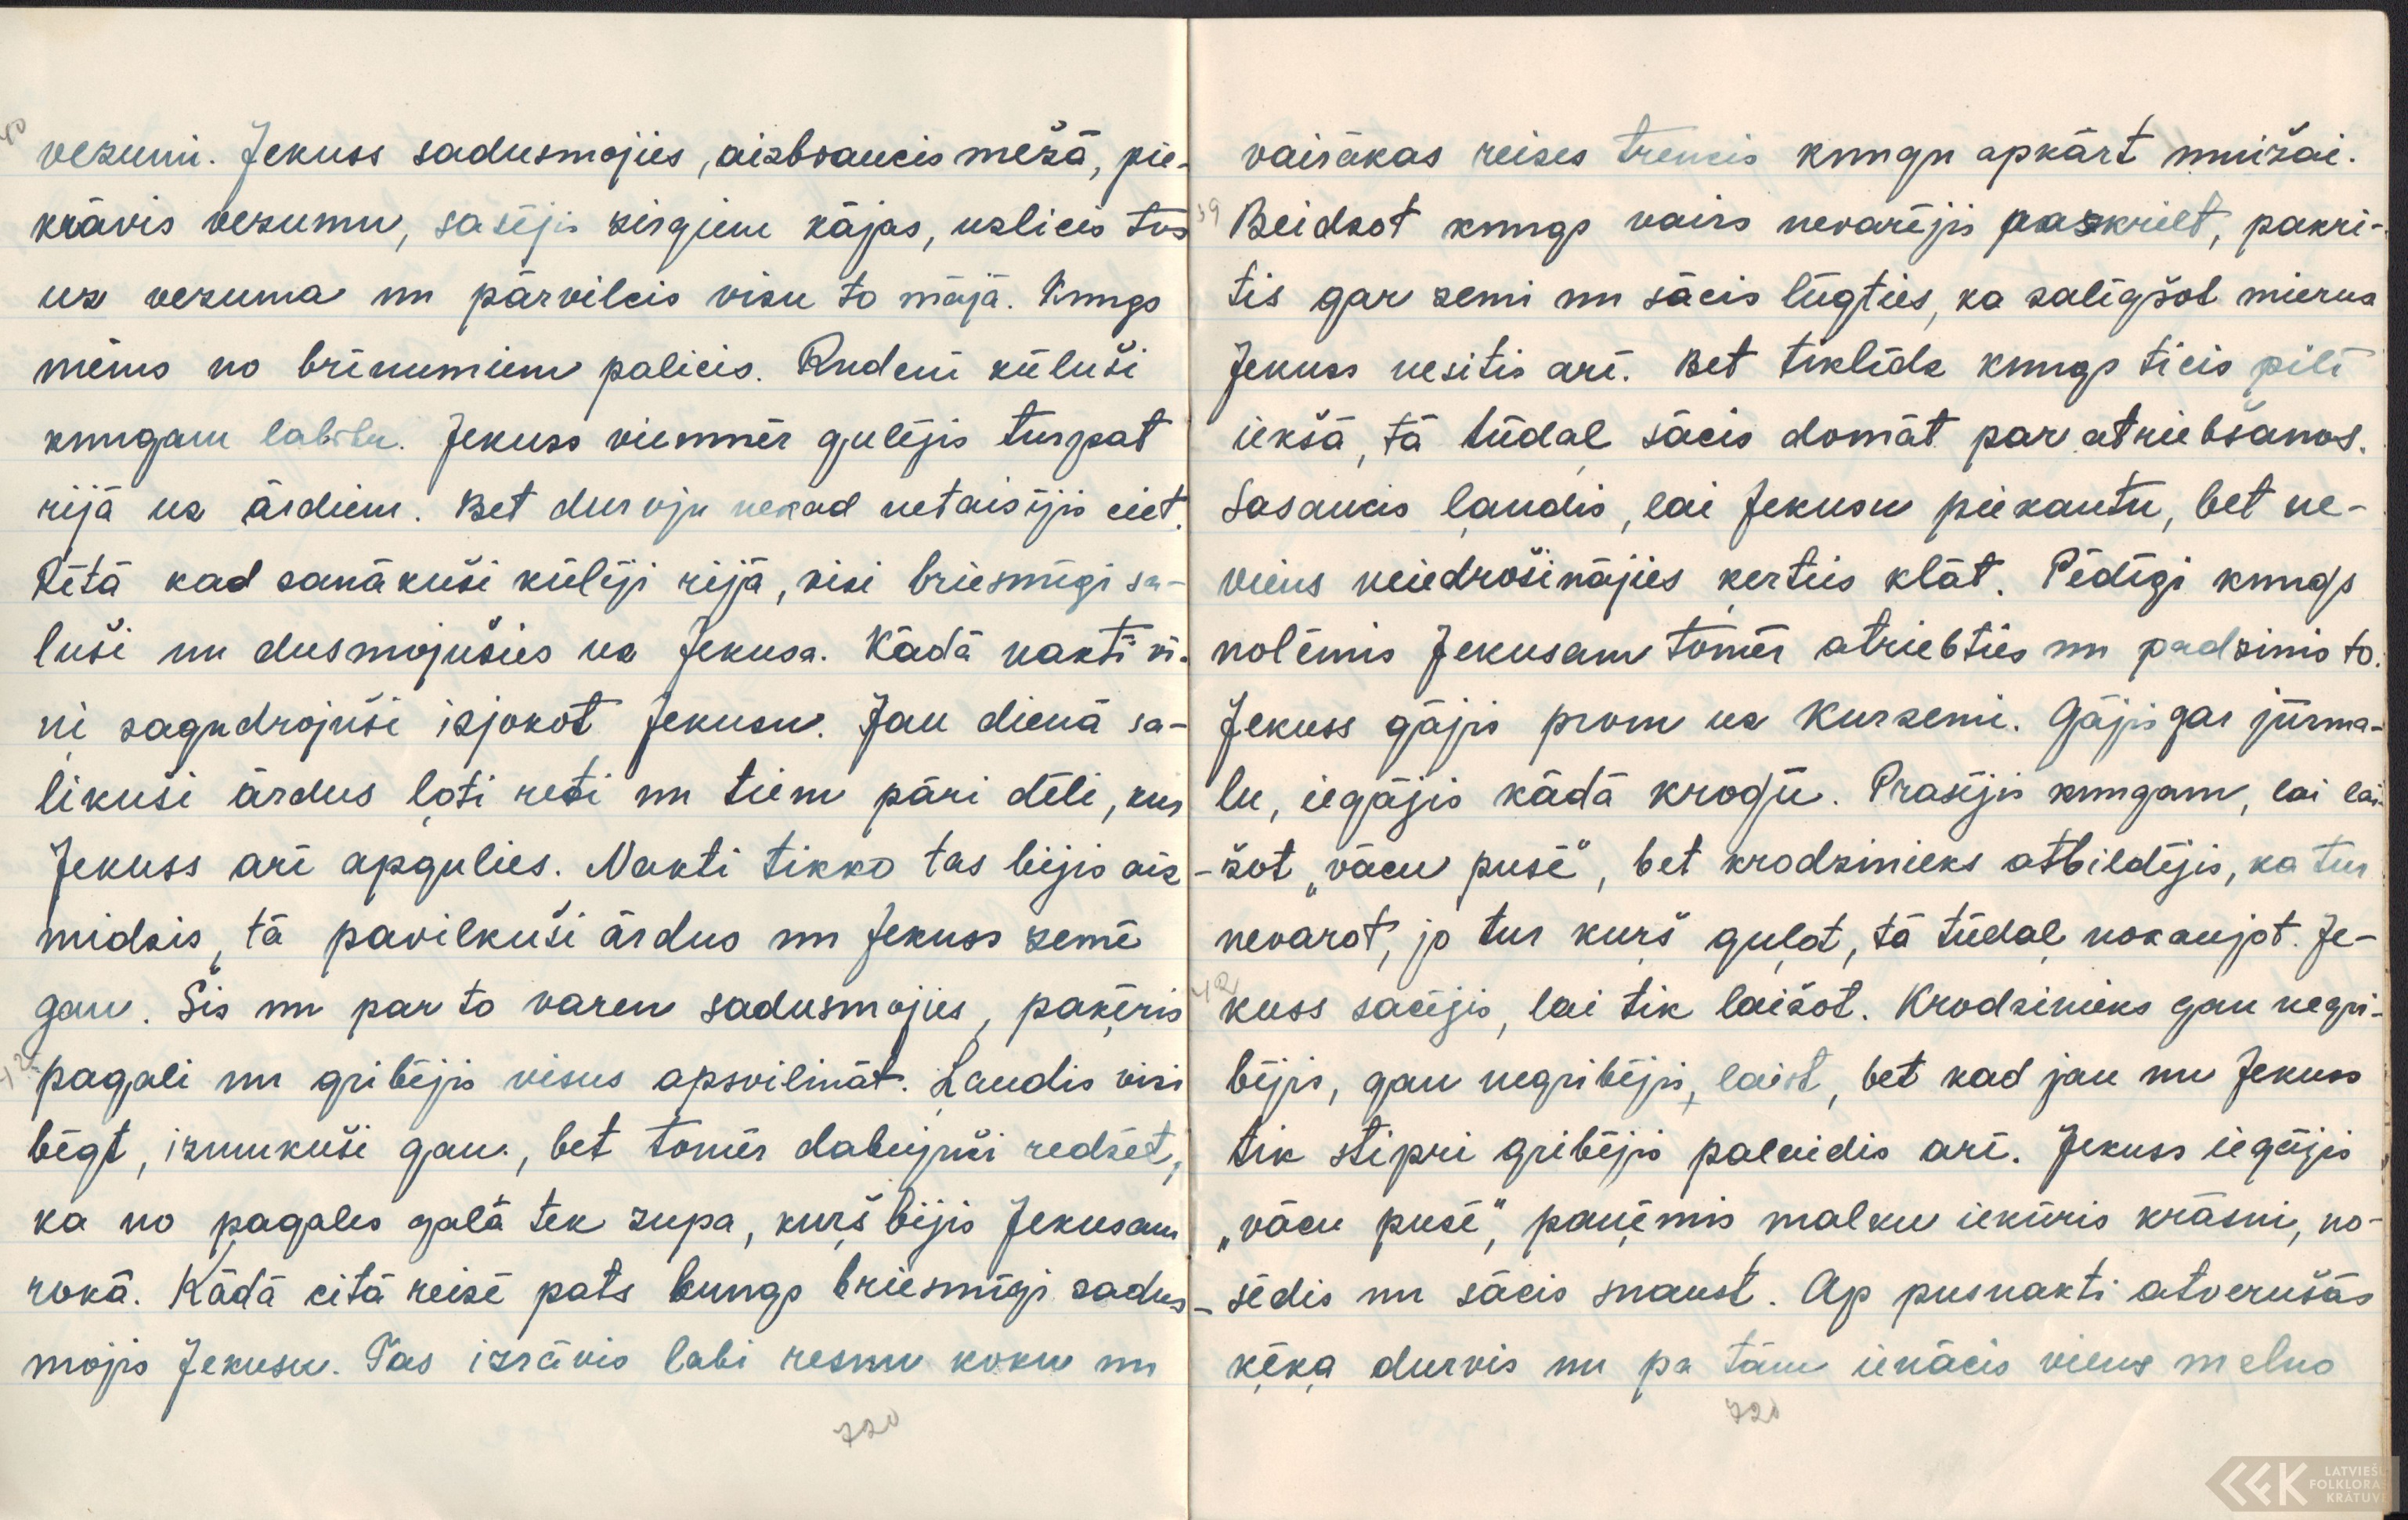 40
vezumi. Jekuss sadusmojies, aizbraucis mežā, pie-
krāvis vezumu, sasējis zirgiem kājas, uzlicis tos
uz vezuma un pārvilcis visu to mājā. Kungs
mēms no brīnumiem palicis. Rudenī kūluši
kungam labību. Jekuss vienmēr gulējis turpat
rijā uz ārdiem. Bet durvju nekad netaisījis ciet.
Rītā kad sanākuši kūlēji rijā, visi briesmīgi sa-
luši un dusmojušies uz Jekusa. Kādā naktī vi-
ņi sagudrojuši izjokot Jekusu. Jau dienā sa-
likuši ārdus ļoti reti un tiem pāri dēli, kur
Jekuss arī apgulies. Naktī tikko tas bijis aiz
midzis, tā pavilkuši ārdus un Jekuss zemē
gan. Šis nu par to varen sadusmojies, paķēris
42
pagali un gribējis visus apsvilināt. Ļaudis visi
bēgt, izmukuši gan, bet tomēr dabūjuši redzēt,
ka no pagales galā tek zupa, kurš bijis Jekusam
rokā. Kādā citā reizē pats kungs briesmīgi sadus-
mojis Jekusu. Tas izrāvis labi resnu koku un
720
vairākas reizes trencis kungu apkārt muižai.
39
Beidzot kungs vairs nevarējis paskriet, pakri-
tis gar zemi un sācis lūgties, ka salīgšot mieru
Jekuss nesitis arī. Bet tiklīdz kungs ticis pilī
iekšā, tā tūdaļ sācis domāt par atriebšanos.
Sasaucis ļaudis, lai Jekusu piekautu, bet ne-
viens neiedrošinājies ķerties klāt. Pēdīgi kungs
nolēmis Jekusam tomēr atriebties un padzinis to.
Jekuss gājis prom uz Kurzemi. Gājis gar jūrma-
lu, iegājis kādā krogū. Prasījis kungam, lai lai-
-žot „vācu pusē", bet krodzinieks atbildējis, ka tur
nevarot, jo tur kurš guļot, tā tūdaļ nokaujot. Je-
42
kuss sacījis, lai tik laižot. Krodzinieks gan negri-
bējis, gan negribējis, laist, bet kad jau nu Jekuss
tik stipri gribējis palaidis arī. Jekuss iegājis
„vācu pusē", paņēmis malku iekūris krāsni, no-
-sēdis un sācis snaust. Ap pusnakti atverušās
ķēķa durvis un pa tām ienācis viens melns
720
LATVIEŠU
FOLKLORAS
KRĀTUVE